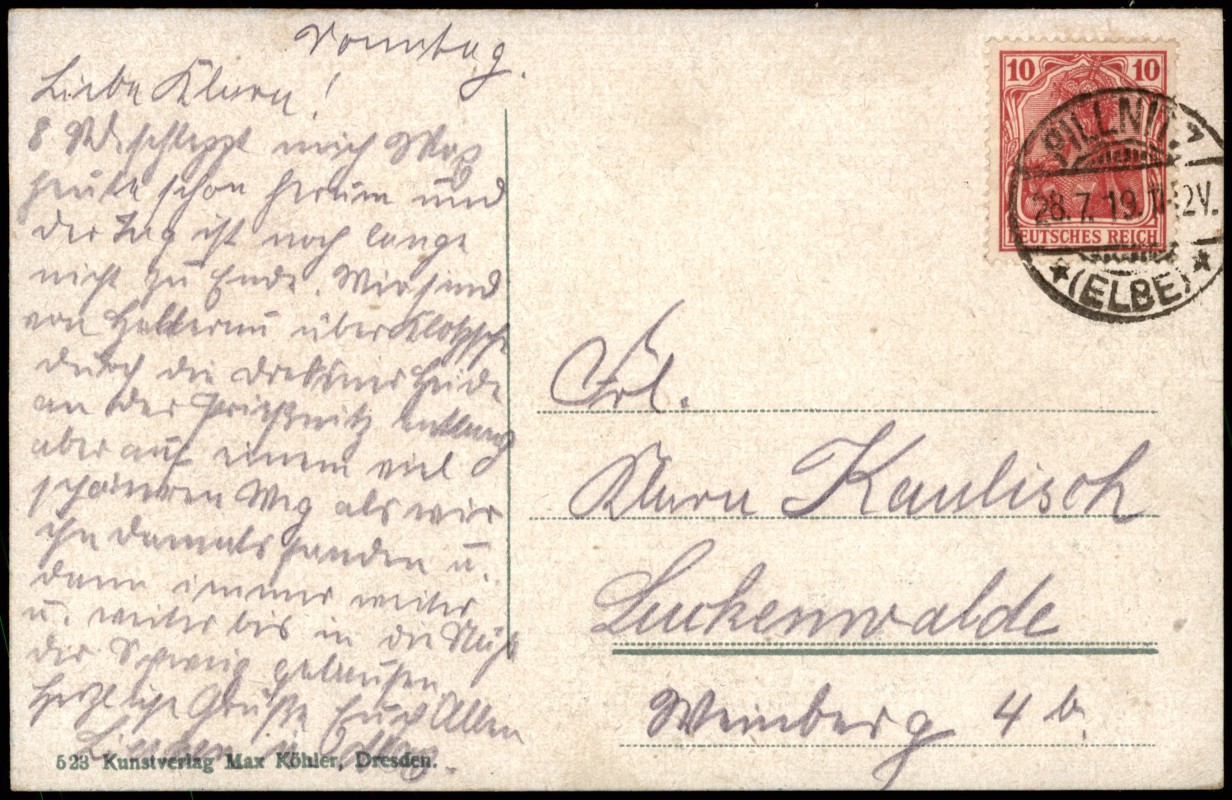 Sonntag.
Liebe Klara!
8 Std. schleppt mich Max
heute schon herum und
der Tag ist noch lange
nicht zu Ende. Wir sind
von Hellerau über Klotzsche
durch die Dresdner Heide
an der Prießnitz entlang
aber auf einem viel
schöneren Weg als wir
ihn damals fanden u.
dann immer weiter
u. weiter bis in die
der gelaufen
Herzliche Grüße Euch Allen
523 Kunstverlag Max Köhler, Dresden.
10 10
DEUTSCHES REICH
PILLNITZ
28.7.19. 11-12V.
(ELBE)
Frl.
Klara Kaulisch
Luckenwalde
Weinberg 4 b.